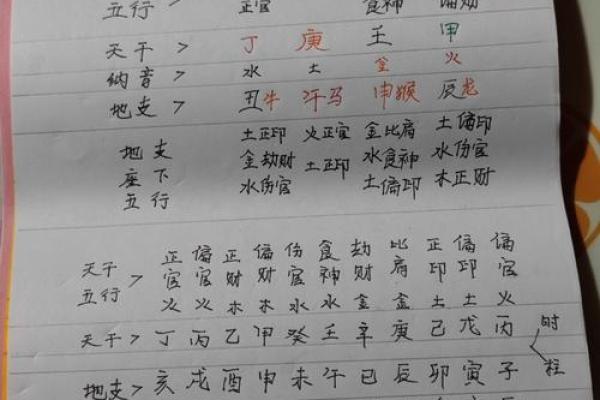 五行> 正官 食神 偏财
天干> 丁 庚 壬 甲
纳音> 水 土 金 火
地支> 丑牛 午马 申猴 辰龙
土正印 火正官 金比肩 土偏印
地支 金劫财 土正印 水食神 水伤官
座下 水伤官 土偏印 木正财
五行
正 偏 正 偏 伤 食 劫 比 正 偏 偏
天干 官 官 财 财 官 神 财 肩 印 印 官
五行> 火 火 木 木 水 水 金 金 土 土 火
天干> 丁 丙 乙 甲 癸 壬 辛 庚 己 戊 丙 时
柱
地支> 亥 戌 酉 申 未 午 巳 辰 卯 寅 子